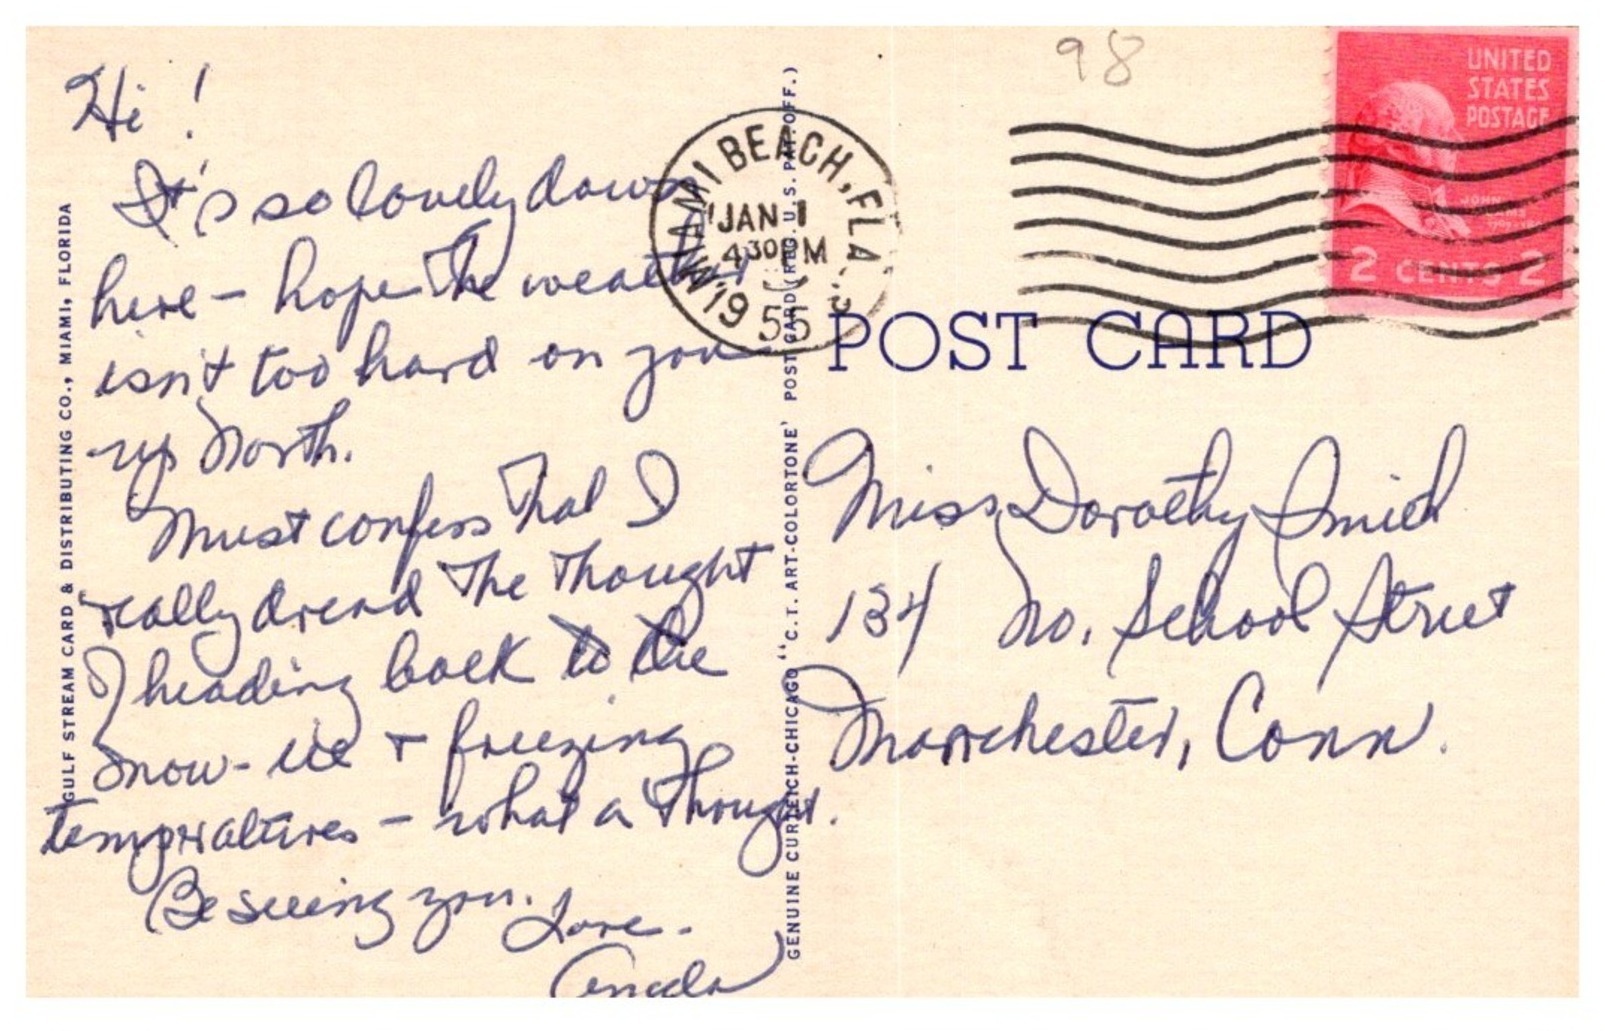 Hi!
It's so lovely down
here - hope the weather
isn't too hard on you
up North.
Must confess that I
really dread the thought
of heading back to the
snow - ice + freezing
temperatures - what a thought.
Be seeing you.
Love.
GULF STREAM CARD & DISTRIBUTING CO., MIAMI, FLORIDA
GENUINE CURTEICH-CHICAGO "C.T. ART-COLORTONE" POST CARD (REG. U.S. PAT. OFF.)
MIAMI BEACH, FLA.
JAN 1
430 PM
1955
98
UNITED
STATES
POSTAGE
2 CENTS 2
POST CARD
Miss Dorothy Smith
134 No. School Street
Manchester, Conn.